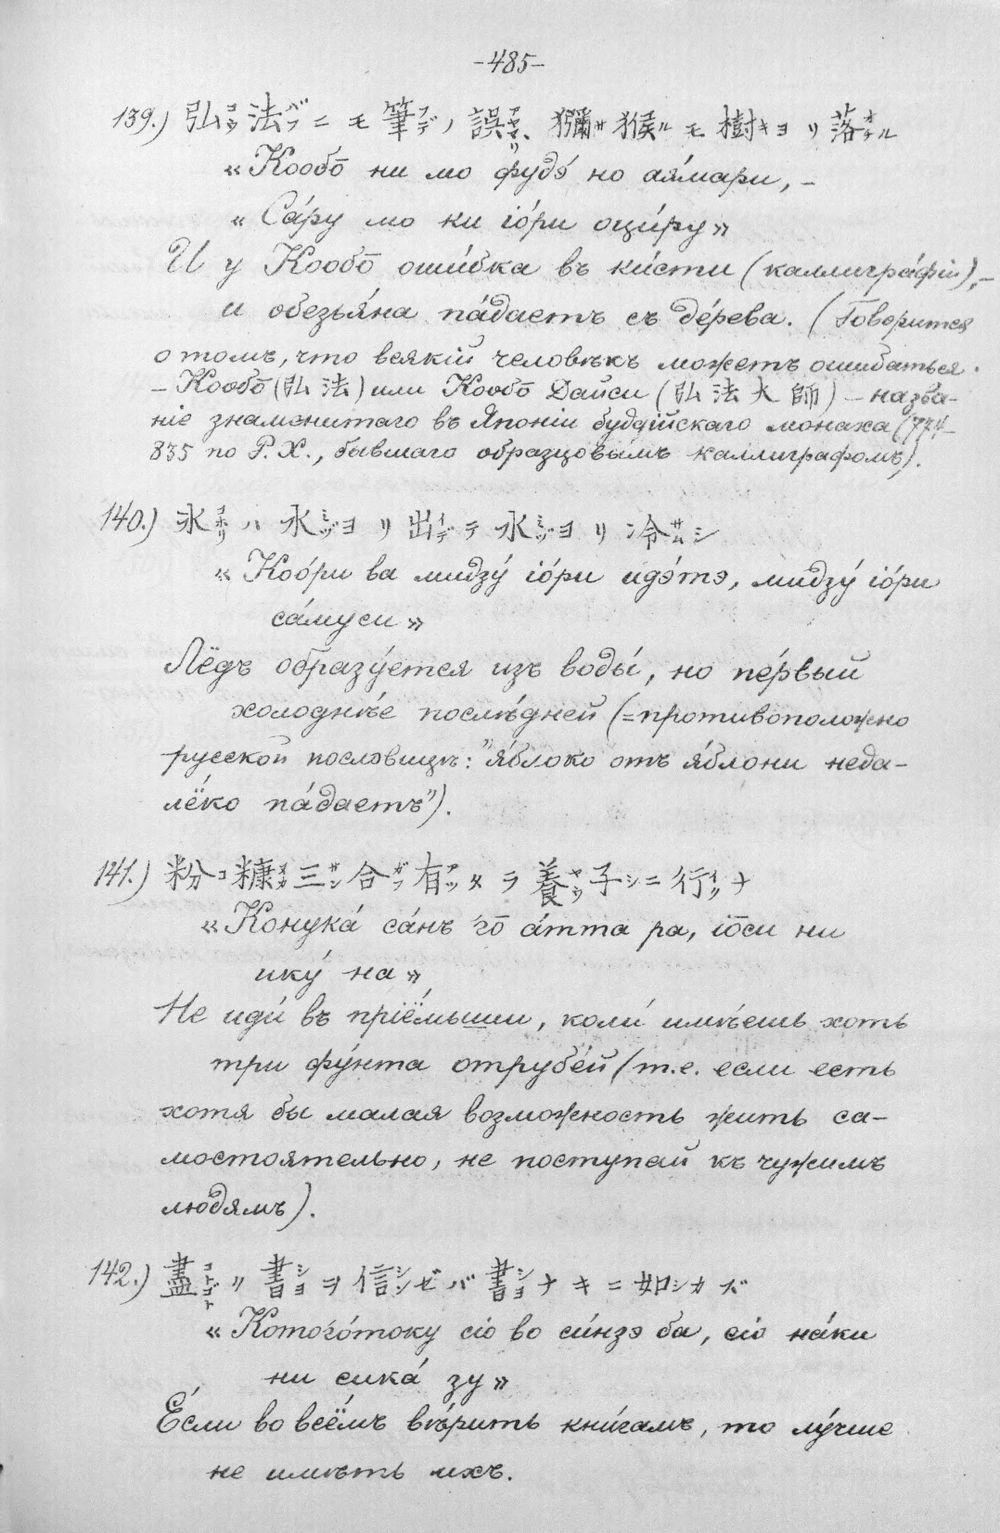 -485-
139.) 弘コウ法バフニモ筆フデノ誤アヤマリ、獼サ猴ルモ樹キヨリ落オチル
«Кообо̄ ни мо фудэ́ но ая́мари, –
«Са́ру мо ки іо́ри оци́ру»
И у Кообо̄ оши́бка въ ки́сти (каллигра́фіи), –
и обезья́на па́даетъ съ де́рева. (Говорится
о томъ, что всякій человѣкъ можетъ ошибаться.
– Кообо̄ (弘法) или Кообо̄ Дайси (弘法大師) – назва-
ніе знаменитаго въ Японіи буддійскаго монаха (774–
835 по Р. Х., бывшаго образцовымъ каллиграфомъ).
140.) 氷コホリハ水ミヅヨリ出イデテ水ミヅヨリ冷サムシ
«Коо́ри ва мидзу́ іо́ри идэ́тэ, мидзу́ іо́ри
са́муси»
Лёдъ образу́ется изъ воды́, но пе́рвый
холоднѣ́е послѣ́дней (=противоположно
русской пословицѣ: "я́блоко отъ я́блони неда-
лёко па́даетъ").
141.) 粉コ糠ヌカ三サン合ガフ有アッタラ養ヤウ子シニ行イクナ
«Конука́ са́нъ го̄ а́тта ра, іо̄си ни
ику́ на»
Не иди́ въ пріёмыши, коли́ имѣ́ешь хоть
три фу́нта отрубе́й (т.е. если есть
хотя бы малая возможность жить са-
мостоятельно, не поступай къ чужимъ
людямъ).
142.) 盡コトゴトリ書シヨヲ信シンゼバ書シヨナキニ如シカズ
«Котого́току сіо во си́нзэ ба, сіо на́ки
ни сика́ зу»
Е́сли во всёмъ вѣ́рить кни́гамъ, то лу́чше
не имѣть ихъ.